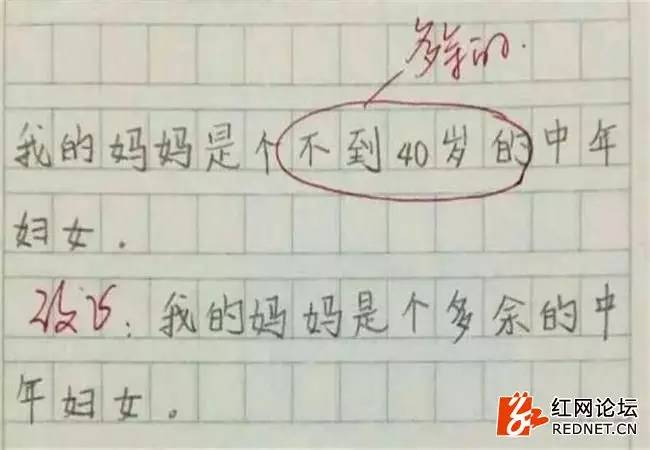 多余的.
我的妈妈是个不到40岁的中年
妇女.
改为:我的妈妈是个多余的中
年妇女。
红网论坛
REDNET.CN